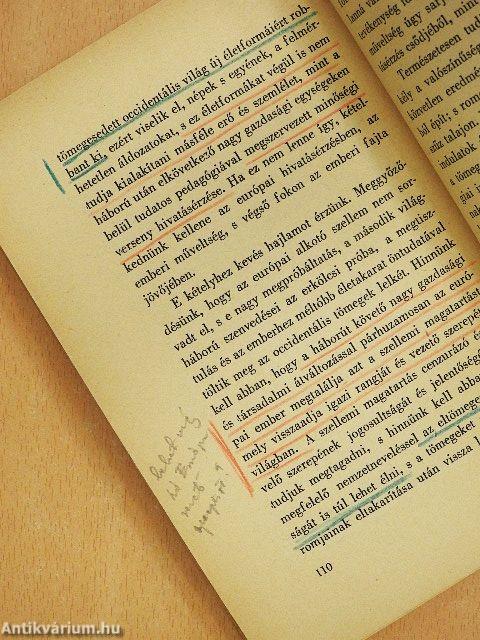 tömegesedett occidentális világ új életformájért rob-
bant ki, ezért viselik el, népek s egyének, a felmér-
hetetlen áldozatokat, s ez életformákat végül is nem
tudja kialakítani másféle erő és szemlélet, mint a
háború után elkövetkező nagy gazdasági egységeken
belül tudatos pedagógiával megszervezett minőségi
verseny hivatásérzése. Ha ez nem lenne így, kétel-
kednünk kellene az európai hivatásérzésben, az
emberi műveltség, s végső fokon az emberi fajta
jövőjében.
E kételyhez kevés hajlamot érzünk. Meggyőző-
désünk, hogy az európai alkotó szellem nem sor-
vadt el, s e nagy megpróbáltatás, a második világ-
háború szenvedései az erkölcsi próba, a megtisz-
tulás és az emberhez méltóbb életakarat öntudatával
töltik meg az occidentális tömegek lelkét. Hinnünk
kell abban, hogy a háborút követő nagy gazdasági
és társadalmi átváltozással párhuzamosan az euró-
pai ember megtalálja azt a szellemi magatartást
mely visszaadja igazi rangját és vezető szerepét
világban. A szellemi magatartás cenzurázó és
velő szerepének jogosultságát és jelentőségé
tudjuk megtagadni, s hinnünk kell abba
megfelelő nemzetneveléssel az eltömege
ságát is túl lehet élni, s a tömegeket
romjainak eltakarítása után vissza l
110
tevékenység
műveltség úgy sarj
tásérzés csődjéből, mi
Természetesen tudj
kóly a valószínűség
közvetlen eredmé
ból épít, s rom
szűz talajon.
mdulatok a
Antikvárium.hu